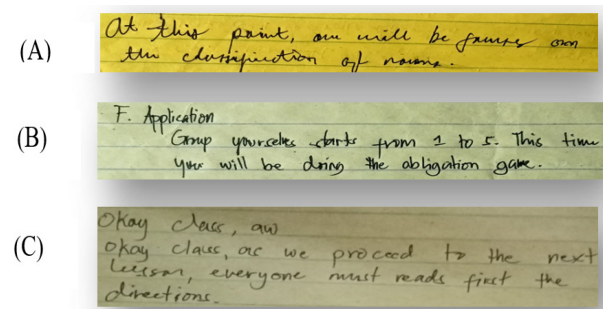 (A)
At this point, our will be focuses on
the classification of nouns.
(B)
F. Application
Group yourselves starts from 1 to 5. This time
you will be doing the obligation game.
(C)
Okay class, aw
Okay class, as we proceed to the next
lesson, everyone must reads first the
directions.